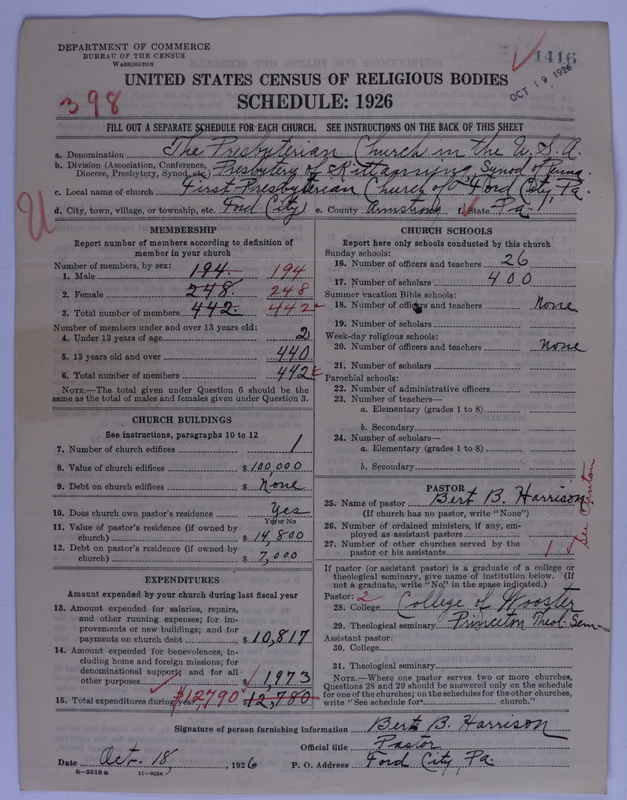 DEPARTMENT OF COMMERCE
BUREAU OF THE CENSUS
WASHINGTON
1416
OCT 19 1926
UNITED STATES CENSUS OF RELIGIOUS BODIES
398
SCHEDULE: 1926
FILL OUT A SEPARATE SCHEDULE FOR EACH CHURCH. SEE INSTRUCTIONS ON THE BACK OF THIS SHEET
a. Denomination The Presbyterian Church in the U.S.A.
b. Division (Association, Conference, Diocese, Presbytery, Synod, etc.) Presbytery of Kittanning, Synod of Penna.
c. Local name of church First Presbyterian Church of Ford City, Pa.
d. City, town, village, or township, etc. Ford City e. County Armstrong f. State Pa.
U
MEMBERSHIP
Report number of members according to definition of
member in your church
Number of members, by sex:
1. Male 194 194
2. Female 248 248
3. Total number of members 442 442
Number of members under and over 13 years old:
4. Under 13 years of age 2
5. 13 years old and over 440
6. Total number of members 442
NOTE.—The total given under Question 6 should be the
same as the total of males and females given under Question 3.
CHURCH BUILDINGS
See instructions, paragraphs 10 to 12
7. Number of church edifices 1
8. Value of church edifices $100,000
9. Debt on church edifices $ None
10. Does church own pastor's residence Yes
Yes or No
11. Value of pastor's residence (if owned by
church) $ 14,800
12. Debt on pastor's residence (if owned by
church) $ 7,000
EXPENDITURES
Amount expended by your church during last fiscal year
13. Amount expended for salaries, repairs,
and other running expenses; for im-
provements or new buildings; and for
payments on church debt $10,817
14. Amount expended for benevolences, in-
cluding home and foreign missions; for
denominational support; and for all
other purposes $ 1,973
15. Total expenditures during year $12,790 $12,780
CHURCH SCHOOLS
Report here only schools conducted by this church
Sunday schools:
16. Number of officers and teachers 26
17. Number of scholars 400
Summer vacation Bible schools:
18. Number of officers and teachers None
19. Number of scholars
Week-day religious schools:
20. Number of officers and teachers None
21. Number of scholars
Parochial schools:
22. Number of administrative officers
23. Number of teachers—
a. Elementary (grades 1 to 8)
b. Secondary
24. Number of scholars—
a. Elementary (grades 1 to 8)
b. Secondary
PASTOR
25. Name of pastor Bert B. Harrison
(If church has no pastor, write "None")
26. Number of ordained ministers, if any, em-
ployed as assistant pastors
27. Number of other churches served by the
pastor or his assistants 1
See
If pastor (or assistant pastor) is a graduate of a college or
theological seminary, give name of institution below. (If
not a graduate, write "No" in the space indicated.)
Pastor: 2
28. College College of Wooster
29. Theological seminary Princeton Theol. Sem—
Assistant pastor:
30. College
31. Theological seminary
NOTE.—Where one pastor serves two or more churches,
Questions 28 and 29 should be answered only on the schedule
for one of the churches; on the schedules for the other churches,
write "See schedule for church."
Signature of person furnishing information Bert B. Harrison
Official title Pastor
Date Oct. 18, 1926 P. O. Address Ford City, Pa.
8-5518a 11-9054